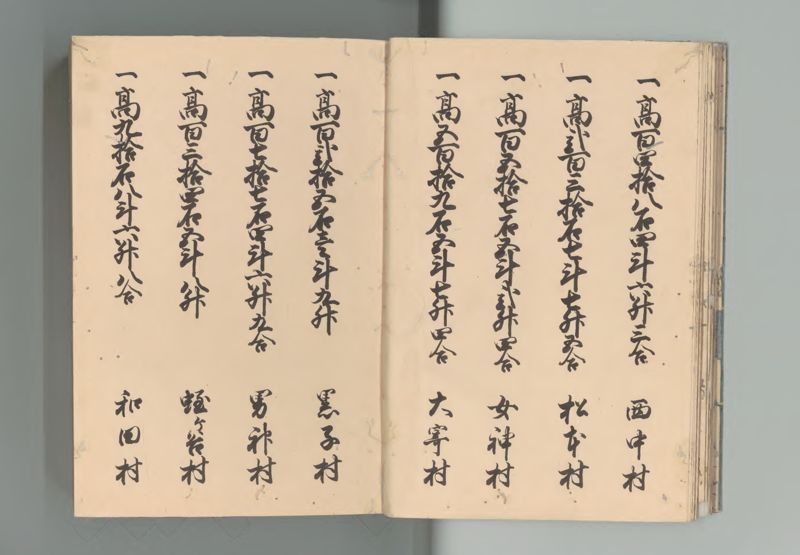 一高百四拾八石四斗六升三合 西中村
一高弐百三拾石七斗七升五合 松本村
一高百五拾七石五斗弐升四合 女神村
一高五百拾九石五斗七升四合 大寄村
一高百弐拾五石壱斗九升 黒子村
一高百七拾七石四斗六升九合 男神村
一高百三拾四石五斗八升 蛭ヶ谷村
一高九拾石八斗六升八合 和田村